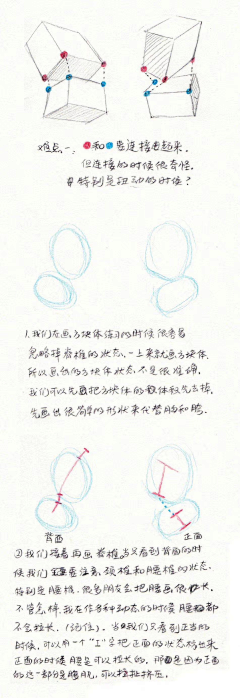 难点一: 和 要连接起来.
但连接的时候很奇怪.
特别是扭动的时候?
1.我们在画方块体练习的时候很容易
忽略掉脊椎的状态,一上来就画方块体.
所以画出的方块体状态不是很准确.
我们可以先把方块体的 体积先去掉.
先画出很简单的形状来代替胸和腰.
背面 正面
②我们接着再画脊椎 当只看到背面的时
候我们 要注意,颈椎和腰椎的状态.
特别是腰椎.很多朋友会把腰画很长.
不管怎样,我在作各种动态的时候腰椎都
不会拉长.(记住).当 只看到正面的
时候,可以用一个"工"字把正面的状态标出来
正面的时候腰是可以拉长的. 那 是因为正面
的这一部分是腹肌,可以拉扯挤压.